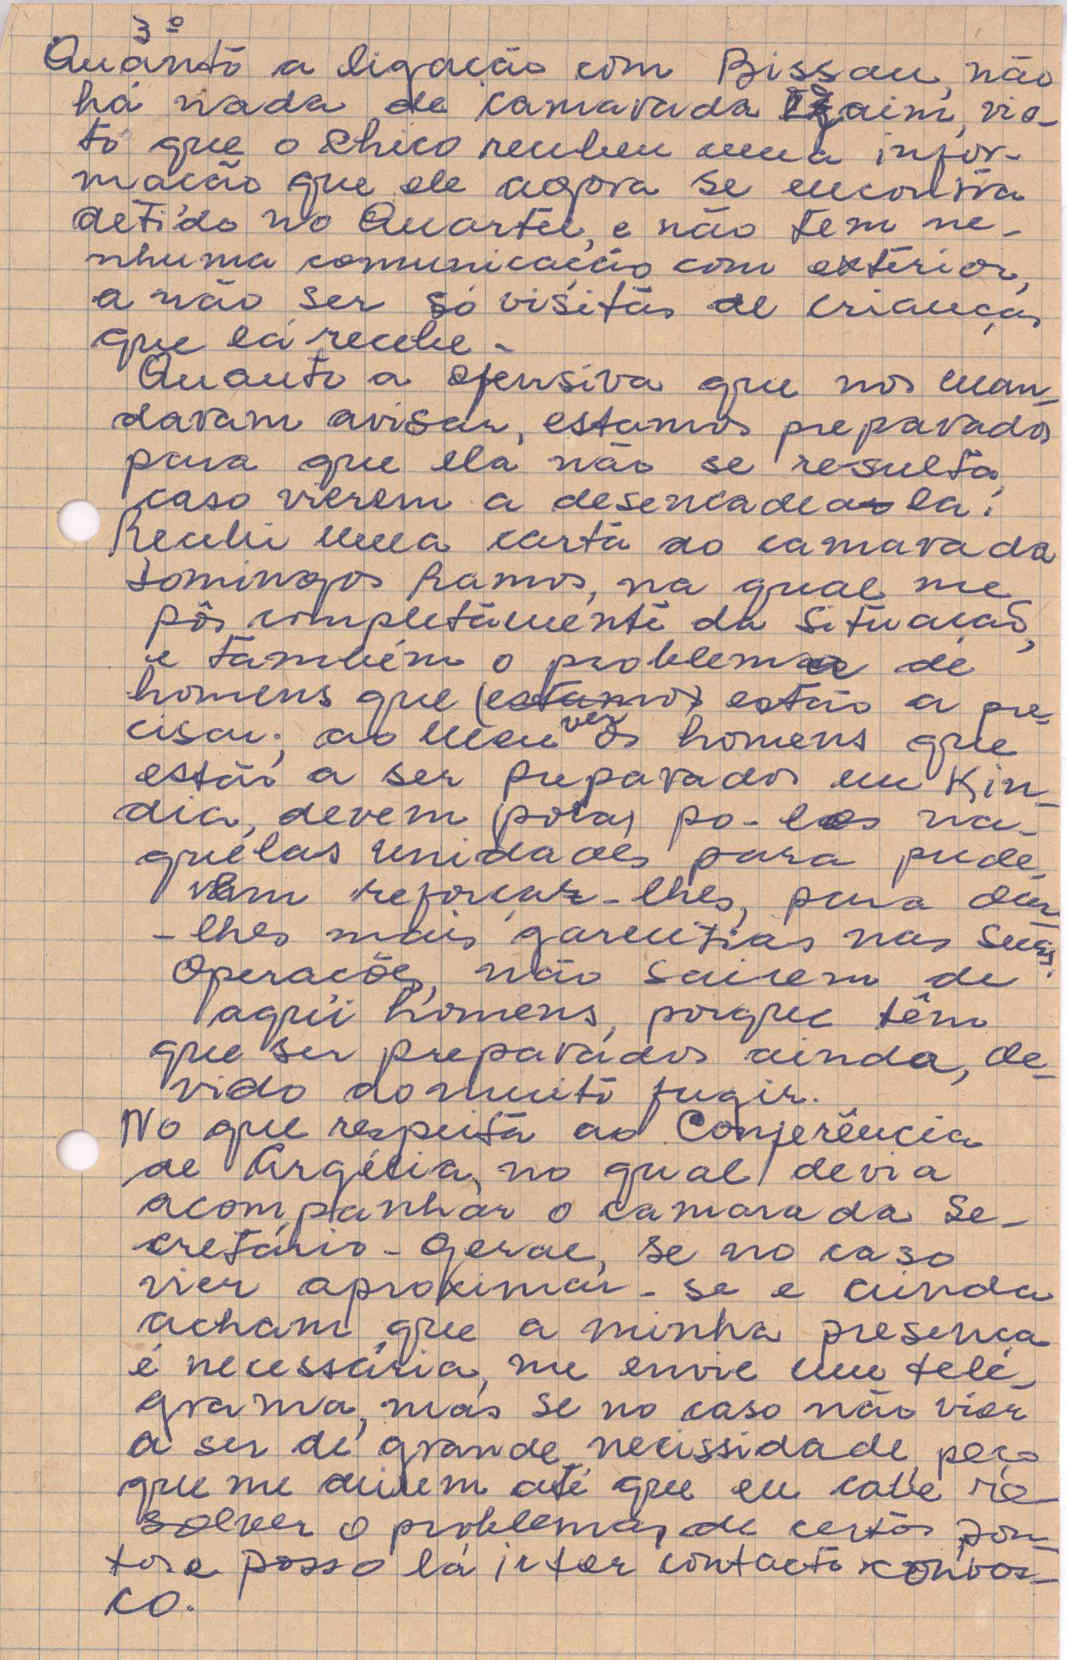 3º
Quanto a ligação com Bissau, não
há nada de camarada Izaim, vis-
to que o Chico recebeu uma infor-
mação que ele agora se encontra
detido no Quartel, e não tem ne-
nhuma comunicação com exterior,
a não ser só visitas de crianças
que lá recebe-
Quanto a ofensiva que nos man-
davam avisar, estamos preparados
para que ela não se resulta,
caso vierem a desencadea la.
Recebi uma carta do camarada
Domingos Ramos, na qual me
pôs completamente da situação,
e também o problema de
homens que (estamos) estão a pre
cisar; ao meu vez os homens que
estão a ser preparados em Kin-
dia, devem (pola) po-los na-
quelas unidades para pude-
ram reforçar-lhes, para dar
-lhes mais garentias nas suas
Operações, não sairem de
aqui homens, porque têm
que ser preparados ainda, de-
vido do muito fugir.
No que respeita ao Conferência
de Argélia, no qual devia
acompanhar o camarada Se-
cretário-Geral, se no caso
vier aproximar-se e ainda
acham que a minha presença
é necessária, me envie um telé-
grama, mas se no caso não vier
a ser de grande necissidade, peço
que me deixem até que eu cabe re-
solver o problemas de certos pon-
tos e posso lá ir ter contacto convos-
co.